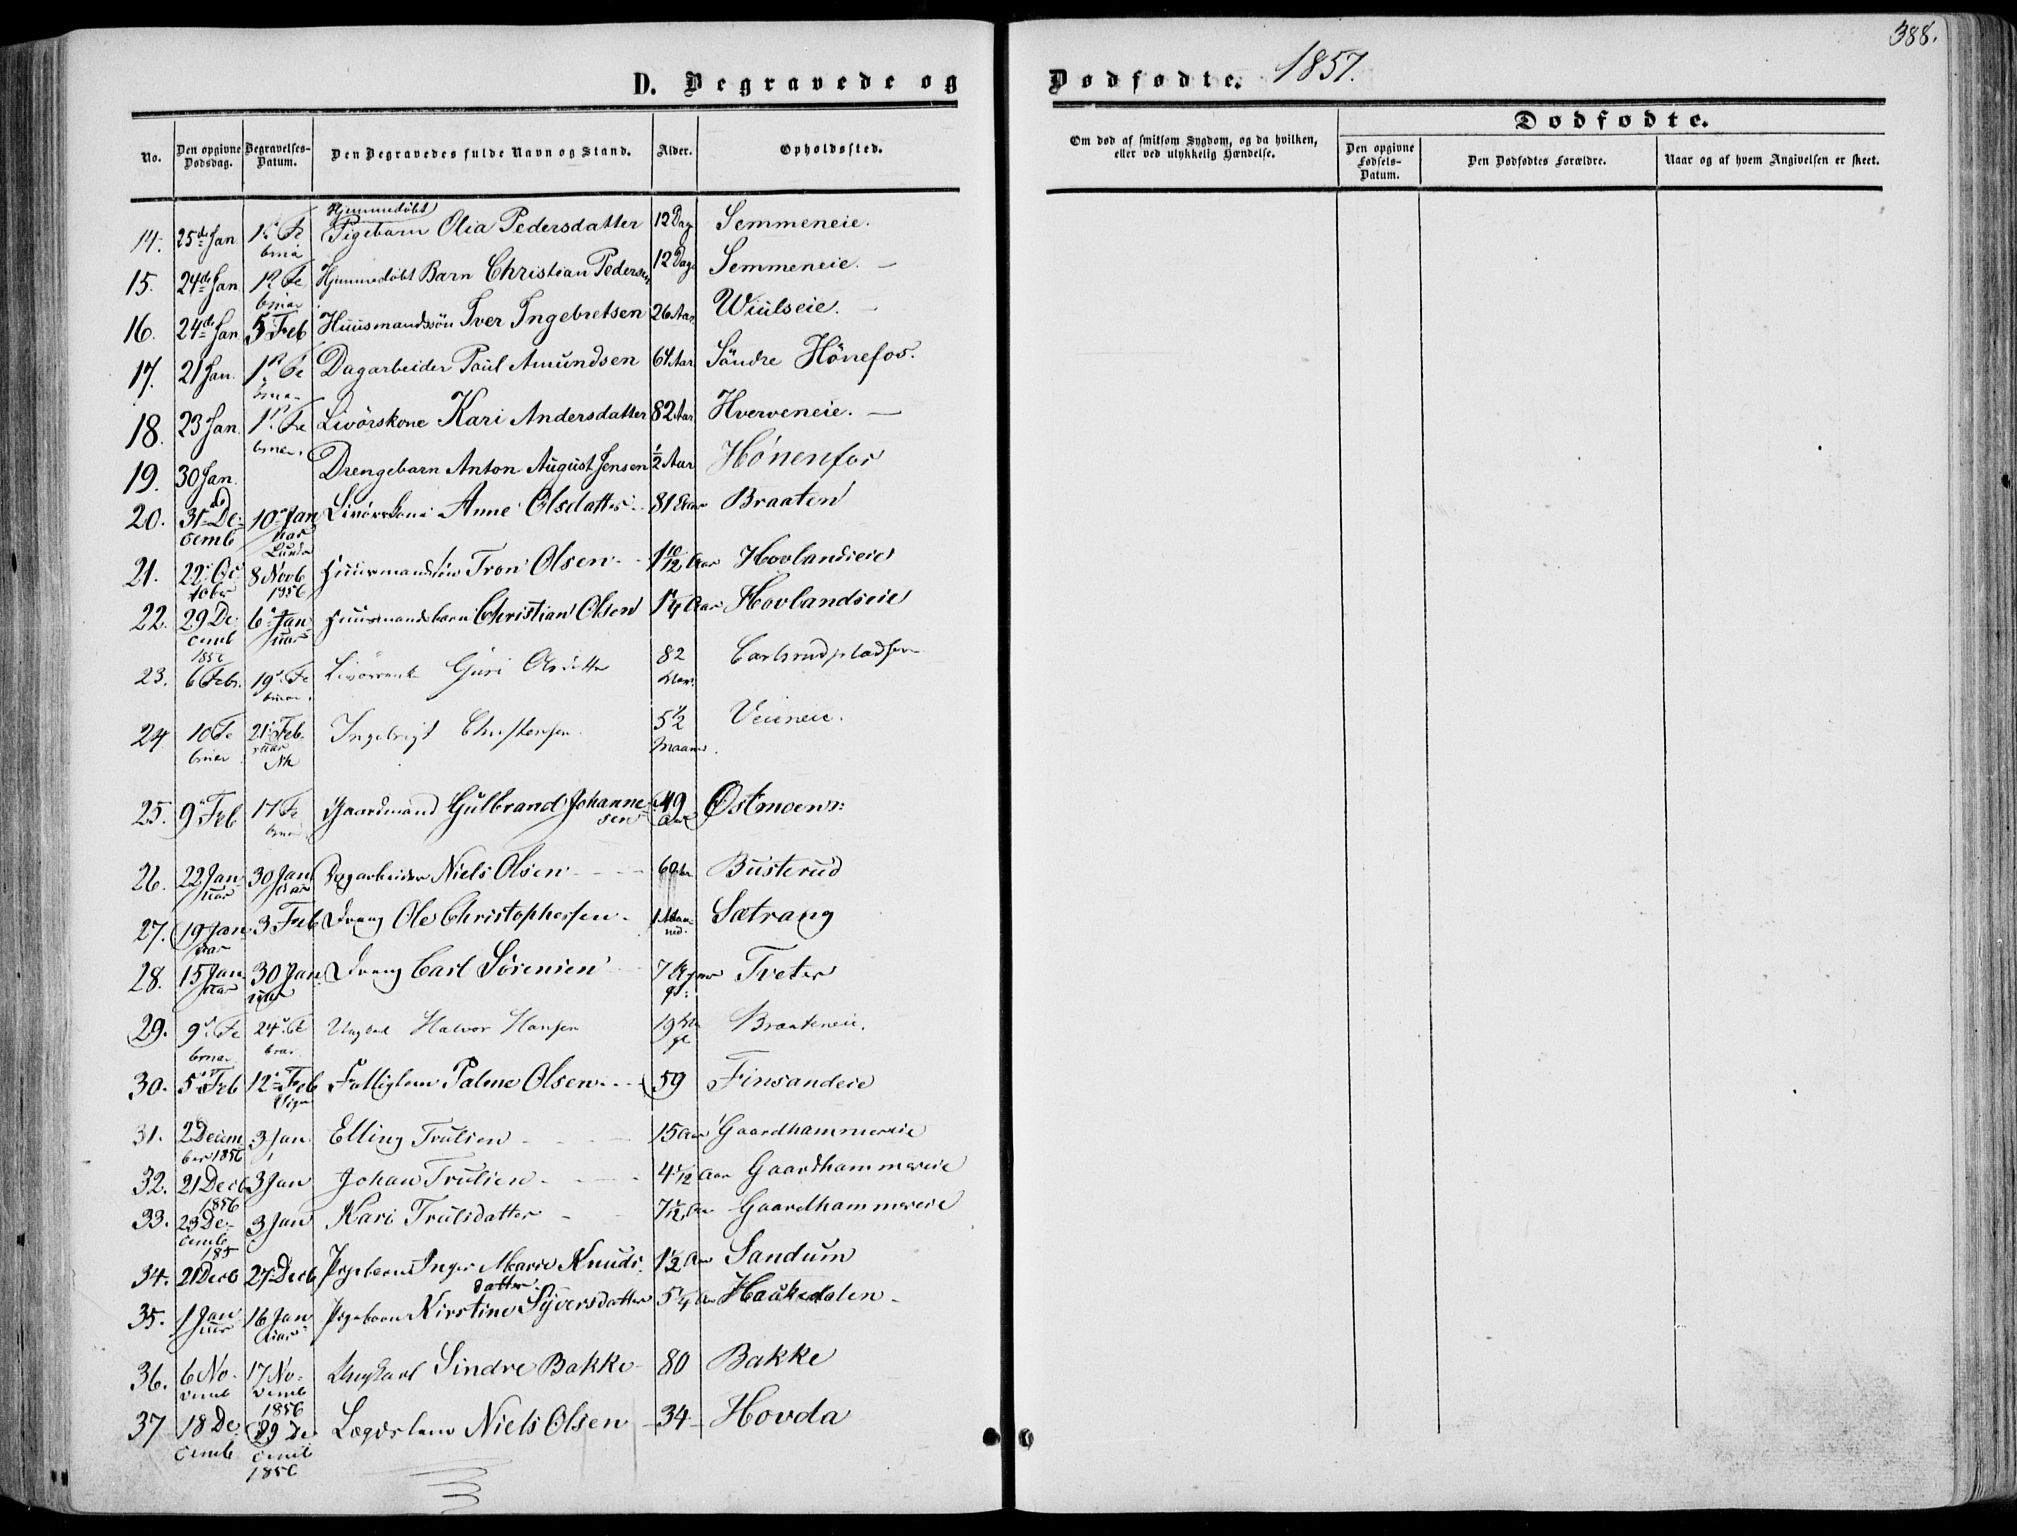 388.
D. Begravede og Dødfødte. 1857.
No. Den opgivne Dødsdag. Begravelses-Datum. Den Begravedes fulde Navn og Stand. Alder. Opholdssted.
Om død af smitsom Sygdom, og da hvilken, eller ved ulykkelig Hændelse.
Dødfødte.
Den opgivne Fødsels-Datum. Den Dødfødtes Forældre. Naar og af hvem Angivelsen er skeet.
14. 25de Jan 1ste Febrüa Hjemmedöbt Pigebarn Olia Pedersdatter 12 Dag Semmeneie.
15. 24de Jan 1st Februar Hjemmedöbt Barn Christian Pedersen 12 Dage Semmeneie. —
16. 24de Jan 5 Feb Huusmandssön Iver Ingebretsen 26 Aar Wiülseie. —
17. 21 Jan. 1st Februar Dagarbeider Paul Amundsen 64 Aar Söndre Hönefos.
18. 23 Jan. 1st Februar Livörskone Kari Andersdatter 82 Aar Hverveneie. —
19. 30 Jan. Drengebarn Anton August Jensen 1/2 Aar Hönenfos
20. 31 Decemb 10 Januar Lunder Livörskone Anne Olsdatter 81 Aar Braaten
21. 22 Octobr 8 Novb 1856 Huusmandssön Tron Olsen 1 10/12 Aar Hovlandseie
22. 29 Decemb 1856 6 Januar Huusmandsbarn Christian Olsen 1 1/4 Aar Hovlandseie
23. 6 Febr. 19 Februar. Livörsenke Guri Olsdatter 82 Aar Carlsrudpladsen
24 10 Februar 21 Februar Nk Ingebrigt Christensen 5 1/2 Maaned. Veieneie.
25. 9 Feb 17 Februar Gaardmand Gulbrand Johannesen 49 Aar Østmoen
26. 22 Januar 30 Januar Dagarbeider Niels Olsen 60 Aar Busterud
27. 19 Januar 3 Feb Dreng Ole Christophersen 1 Maaned. Sætrang
28. 15 Januar 30 Januar Dreng Carl Sörensen 7 Uger Tveter
29. 9 Februar 24 Februar Ungkarl Halvor Hansen 19 Braateneie.
30. 5 Feb 12 Feb Viger Fattiglem Palme Olsen 59 Finsandeie
31. 2 December 1856 3 Jan Elling Trulsen 15 Aar Gaardhammereie
32. 21 Decb 1856 3 Jan Johan Trulsen 4 1/12 Aar Gaardhammereie
33. 23 Decemb 185 3 Jan Kari Trulsdatter 7 1/2 Aar Gaardhammereie
34. 21 Decb 27 Decb Pigebarn Inger Marie Knudsdatter 1 1/2 Aar Sandum
35. 1 Januar 16 Januar Pigebarn Kirstine Syversdatter 5 1/4 Aar Haukedalen
36. 6 Novemb 17 Novemb 1856 Ungkarl Sindre Bakke 80 Bakke
37 18 Decemb 29 Decemb 1856 Lægdslem Niels Olsen 34 Hovda